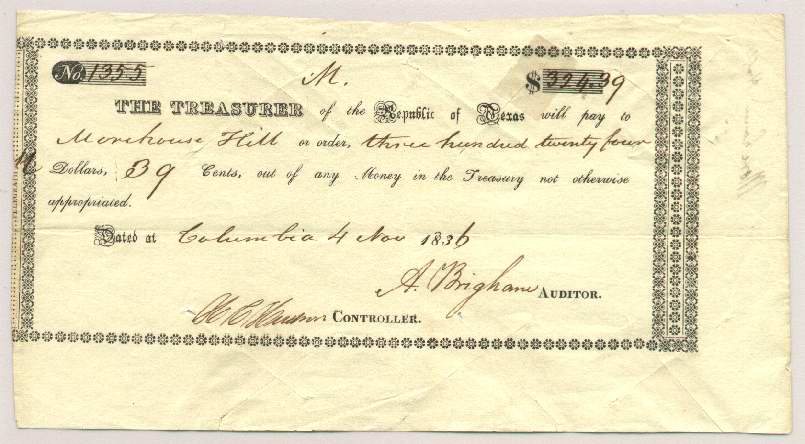 No. 1355 M. $324.39
THE TREASURER of the Republic of Texas will pay to
Morehouse Hill or order, three hundred twenty four
Dollars, 39 Cents, out of any Money in the Treasury not otherwise
appropriated.
Dated at Columbia 4 Nov 1836
A. Brigham AUDITOR.
CONTROLLER.